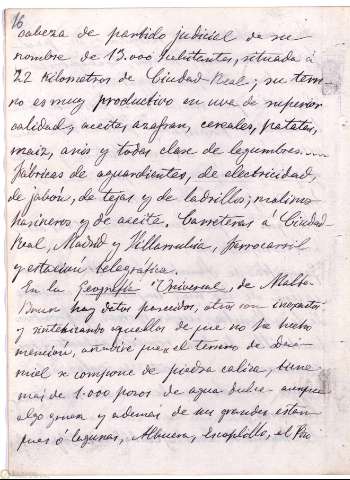 16
cabeza de partido judicial de su
nombre de 13.000 habitantes, situada á
22 Kilometros de Ciudad-Real; su térmi-
no es muy productivo en uva de superior
calidad, aceite, azafran, cereales, patatas,
maiz, anis y todas clase de legumbres....
fábricas de aguardientes, de electricidad,
de jabón, de tejas y de ladrillos; molinos
harineros y de aceite. Carreteras á Ciudad-
Real, Madrid y Villarrubia, ferrocarril
y estación telegráfica.
En la Geografia Universal, de Malte-
Brun hay datos parecidos, otros son inexactos
y sintetizando aquellos de que no he hecho
mención, añadiré que el terreno de Dai-
miel se compone de piedra caliza, tiene
más de 1.000 pozos de agua dulce aunque
algo gruesa y además de sus grandes estan-
ques ó lagunas, Albuera, Escoplillo, el